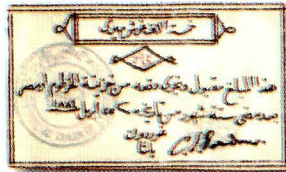 خمسة آلاف غرش ميرى
هذا المبلغ مقبول وتجرى دفعه من خزينة الخرطوم او مصر
بعد مضى ستة شهور من تاريخه ٢٥ ابريل ١٨٨٤
غوردون
باشا